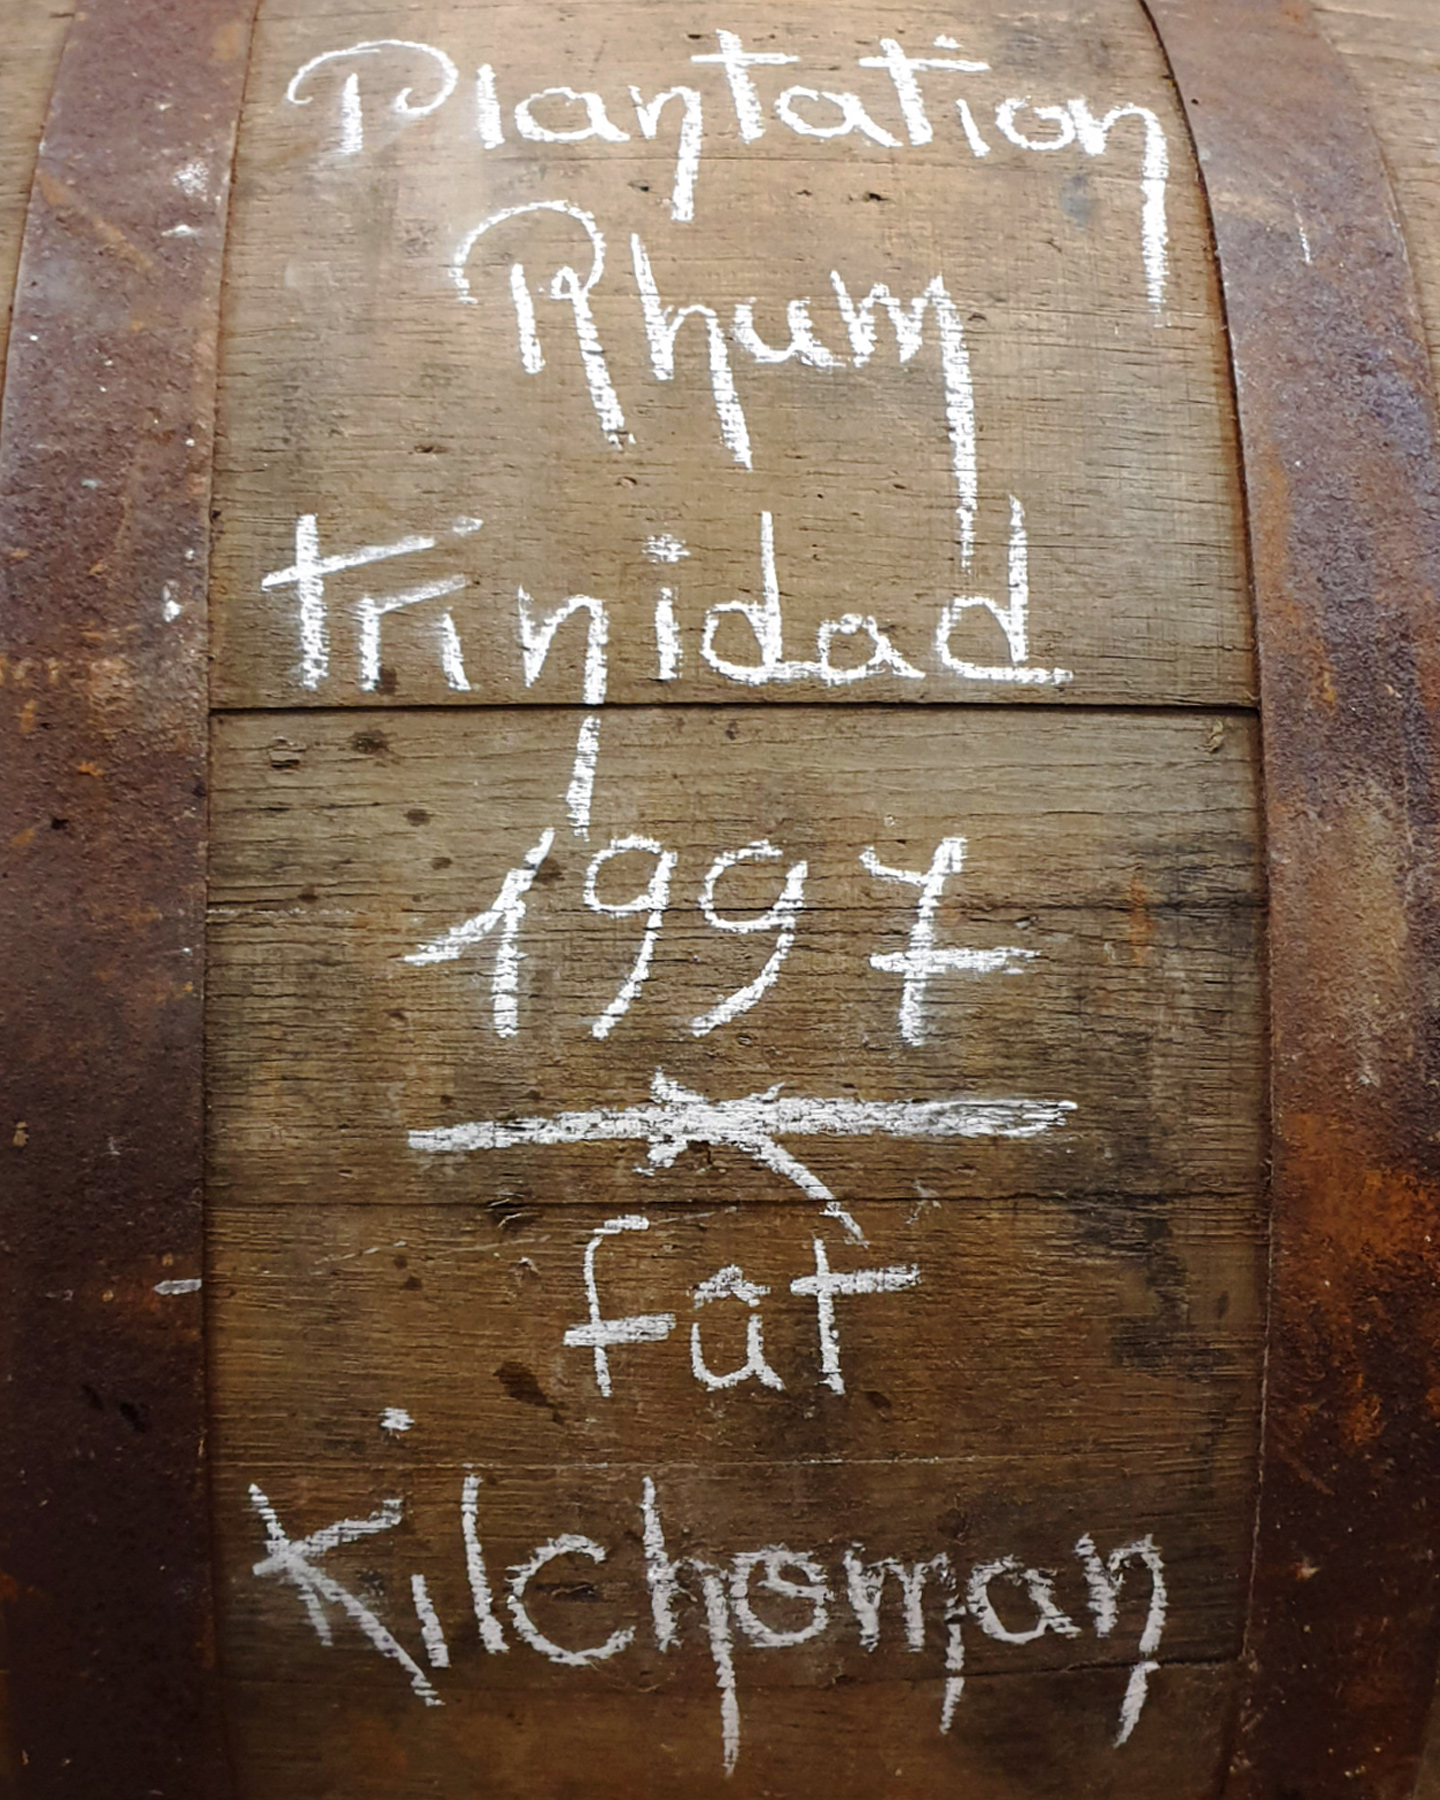 Plantation
Rhum
Trinidad
1997
fût
Kilchoman